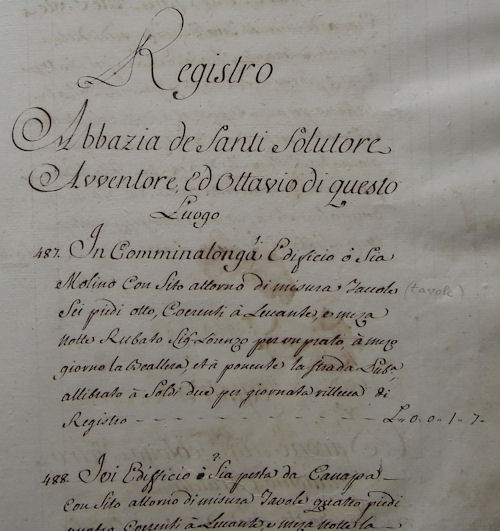 Registro
Abbazia de Santi Solutore
Avventore, Ed Ottavio di questo
Luogo
487. In Comminalonga Edificio ò Sia
Molino Con Sito attorno di misura Tavole (tavole)
Sei piedi otto, Coerenti à Levante, e meza
notte Rubato Sig. Lorenzo per un prato, à mezo
giorno la Beallera et à ponente la strada Pub.
allibrato à Soldi due per giornata di
Registro - - - - - - - - - - L. 0. 0. 1. 7.
488. Ivi Edifficio ò Sia pista da Canapa
Con Sito attorno di misura Tavole quatro piedi
quatro Coerenti à Levante e meza notte la